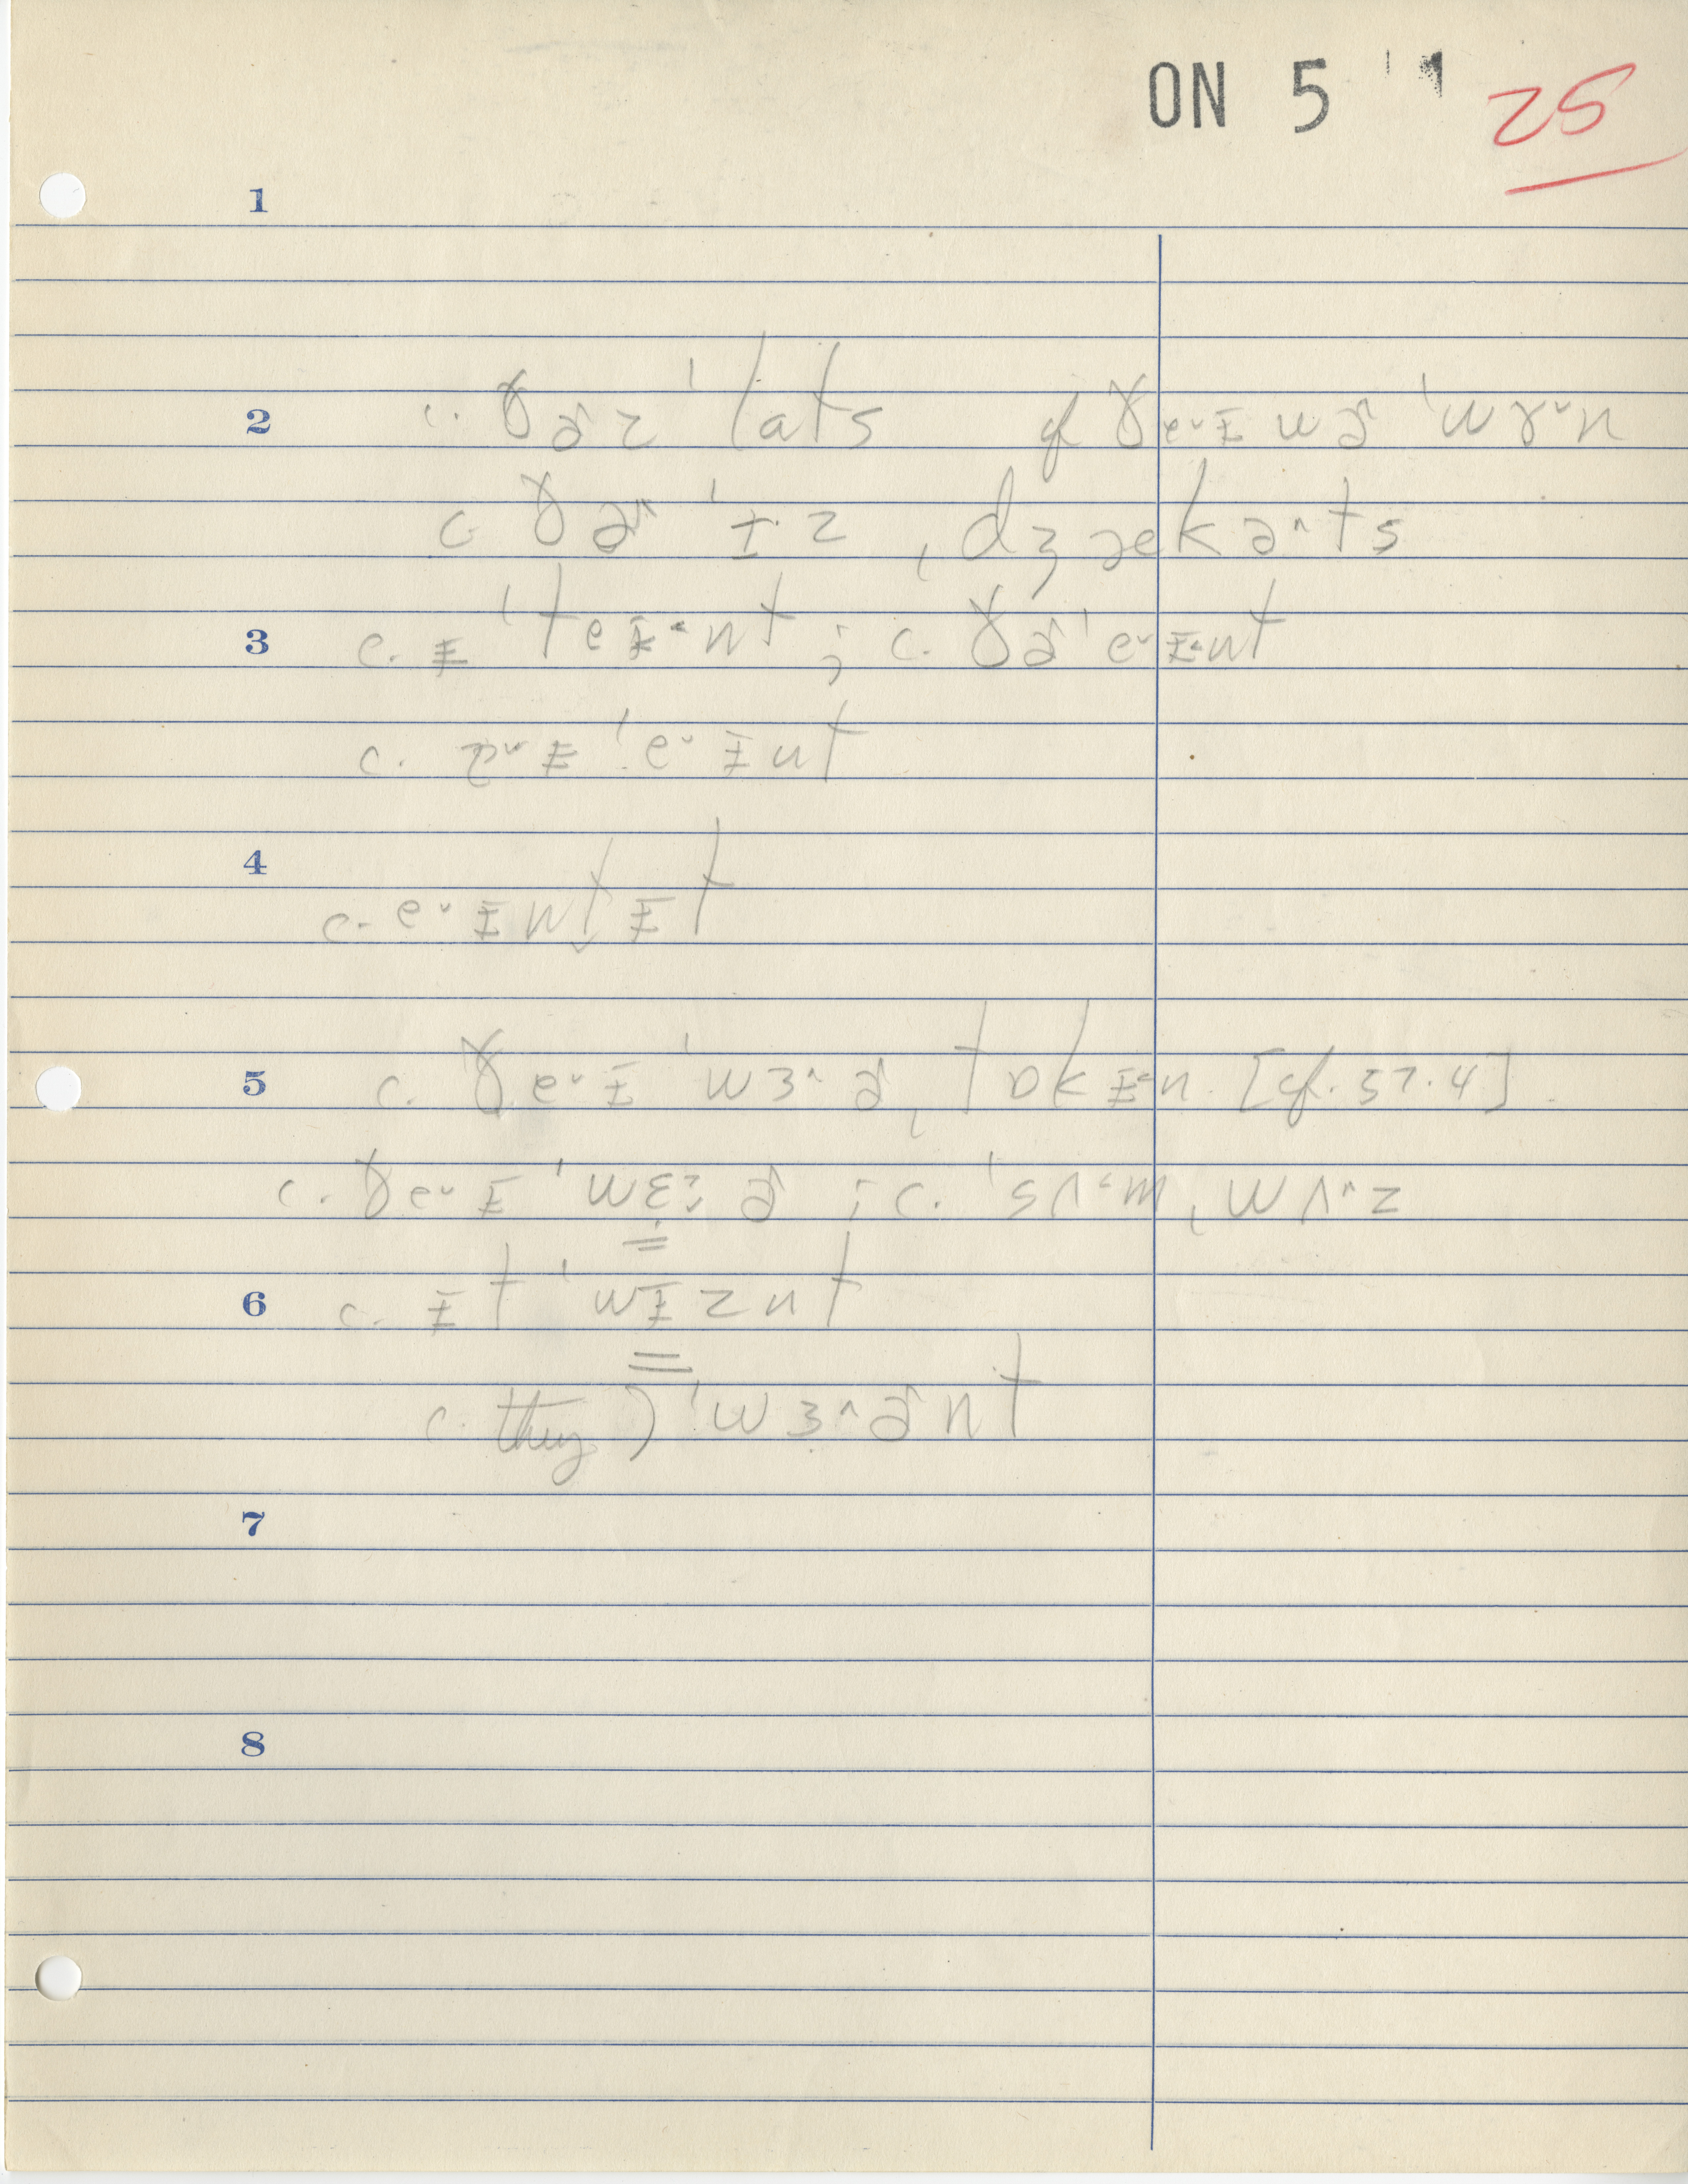 ON 5 25
1
2 c. ðɚz ˈlɑts of ðe˅ɪ wɚ ˈwɤ˅n
c. ðɚ^ ˈɪz ˌdʒækə^ts
3 c. ɪ ˈteɪ˂nt ; c. ðɚ ˈe˅ɪ˂nt
c. ˈe˅ɪnt
4 c. e˅ɪnt̬ɪt
5 c. ðe˅ɪ ˈwɜ^ɚ ˌtɒkɪ˂n. [cf. 57.4]
c. ðe˅ɪ ˈwɛɚ ; c. ˈsʌ˂m ˌwʌ^z
6 c. ɪt ˈwɪznt
c. they) ˈwɜ^ɚnt
7
8